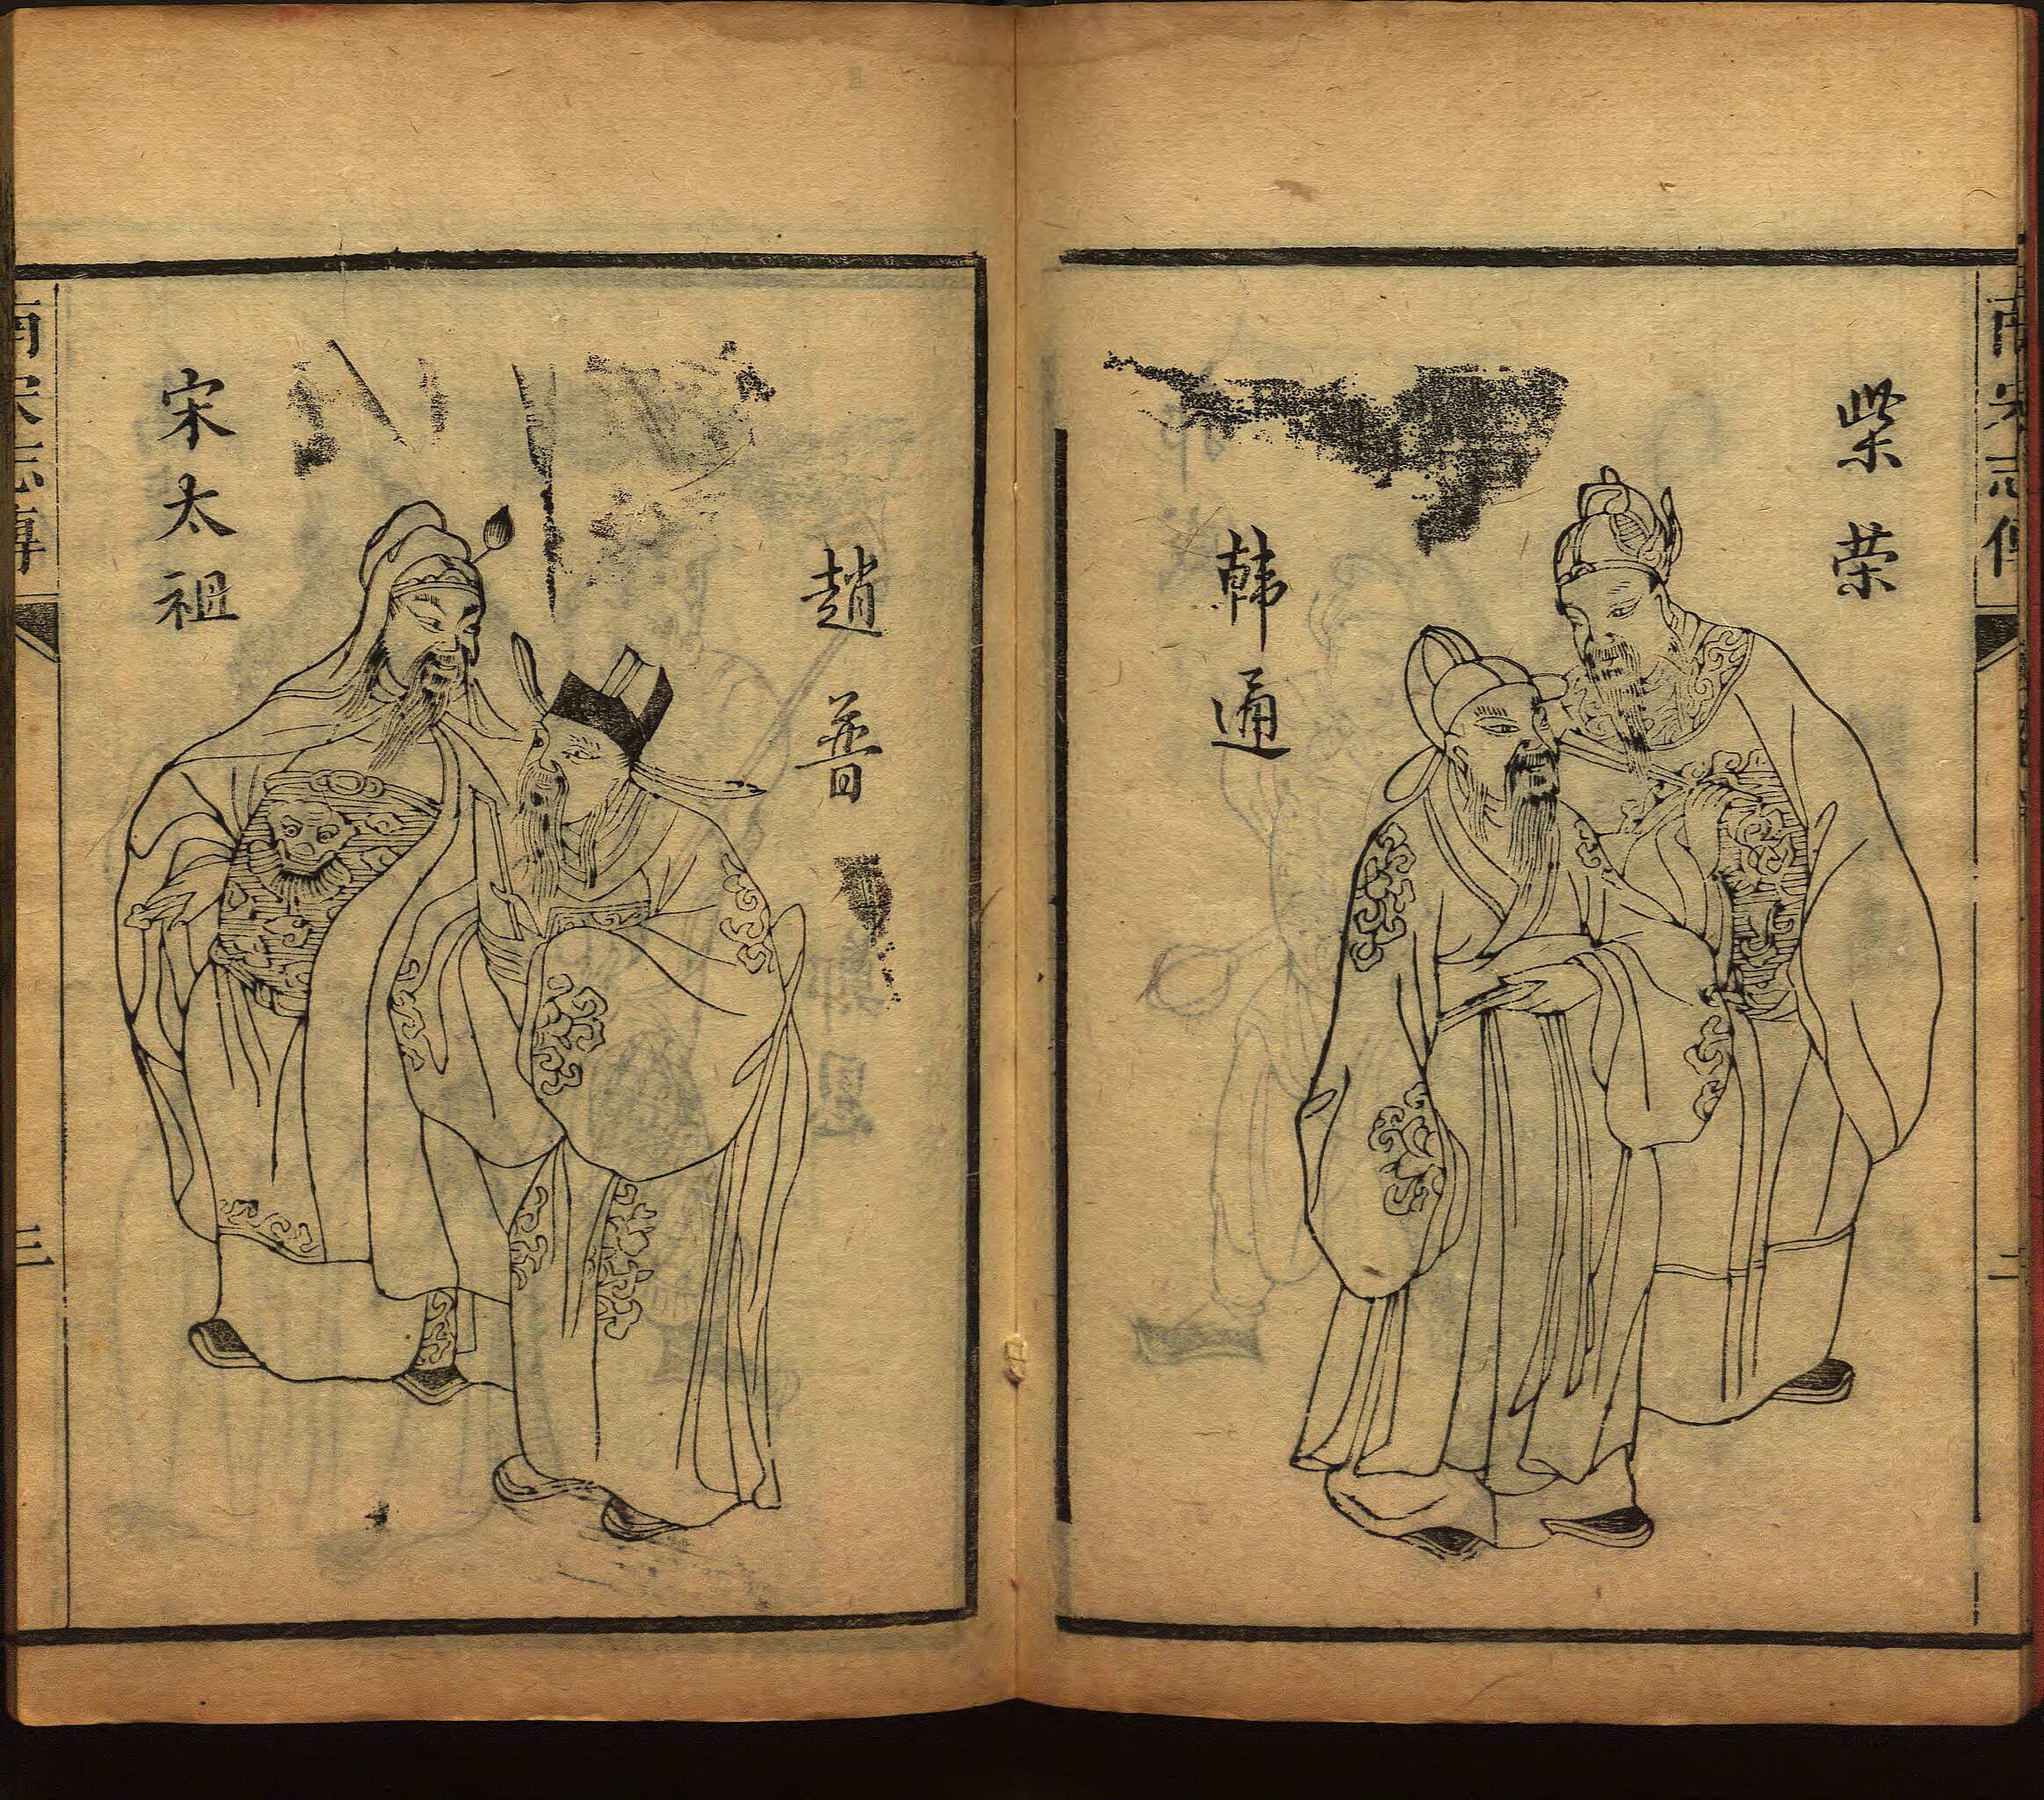 南宋志傳
二
柴荣
韩通
趙普
宋太祖
南宋志傳
三